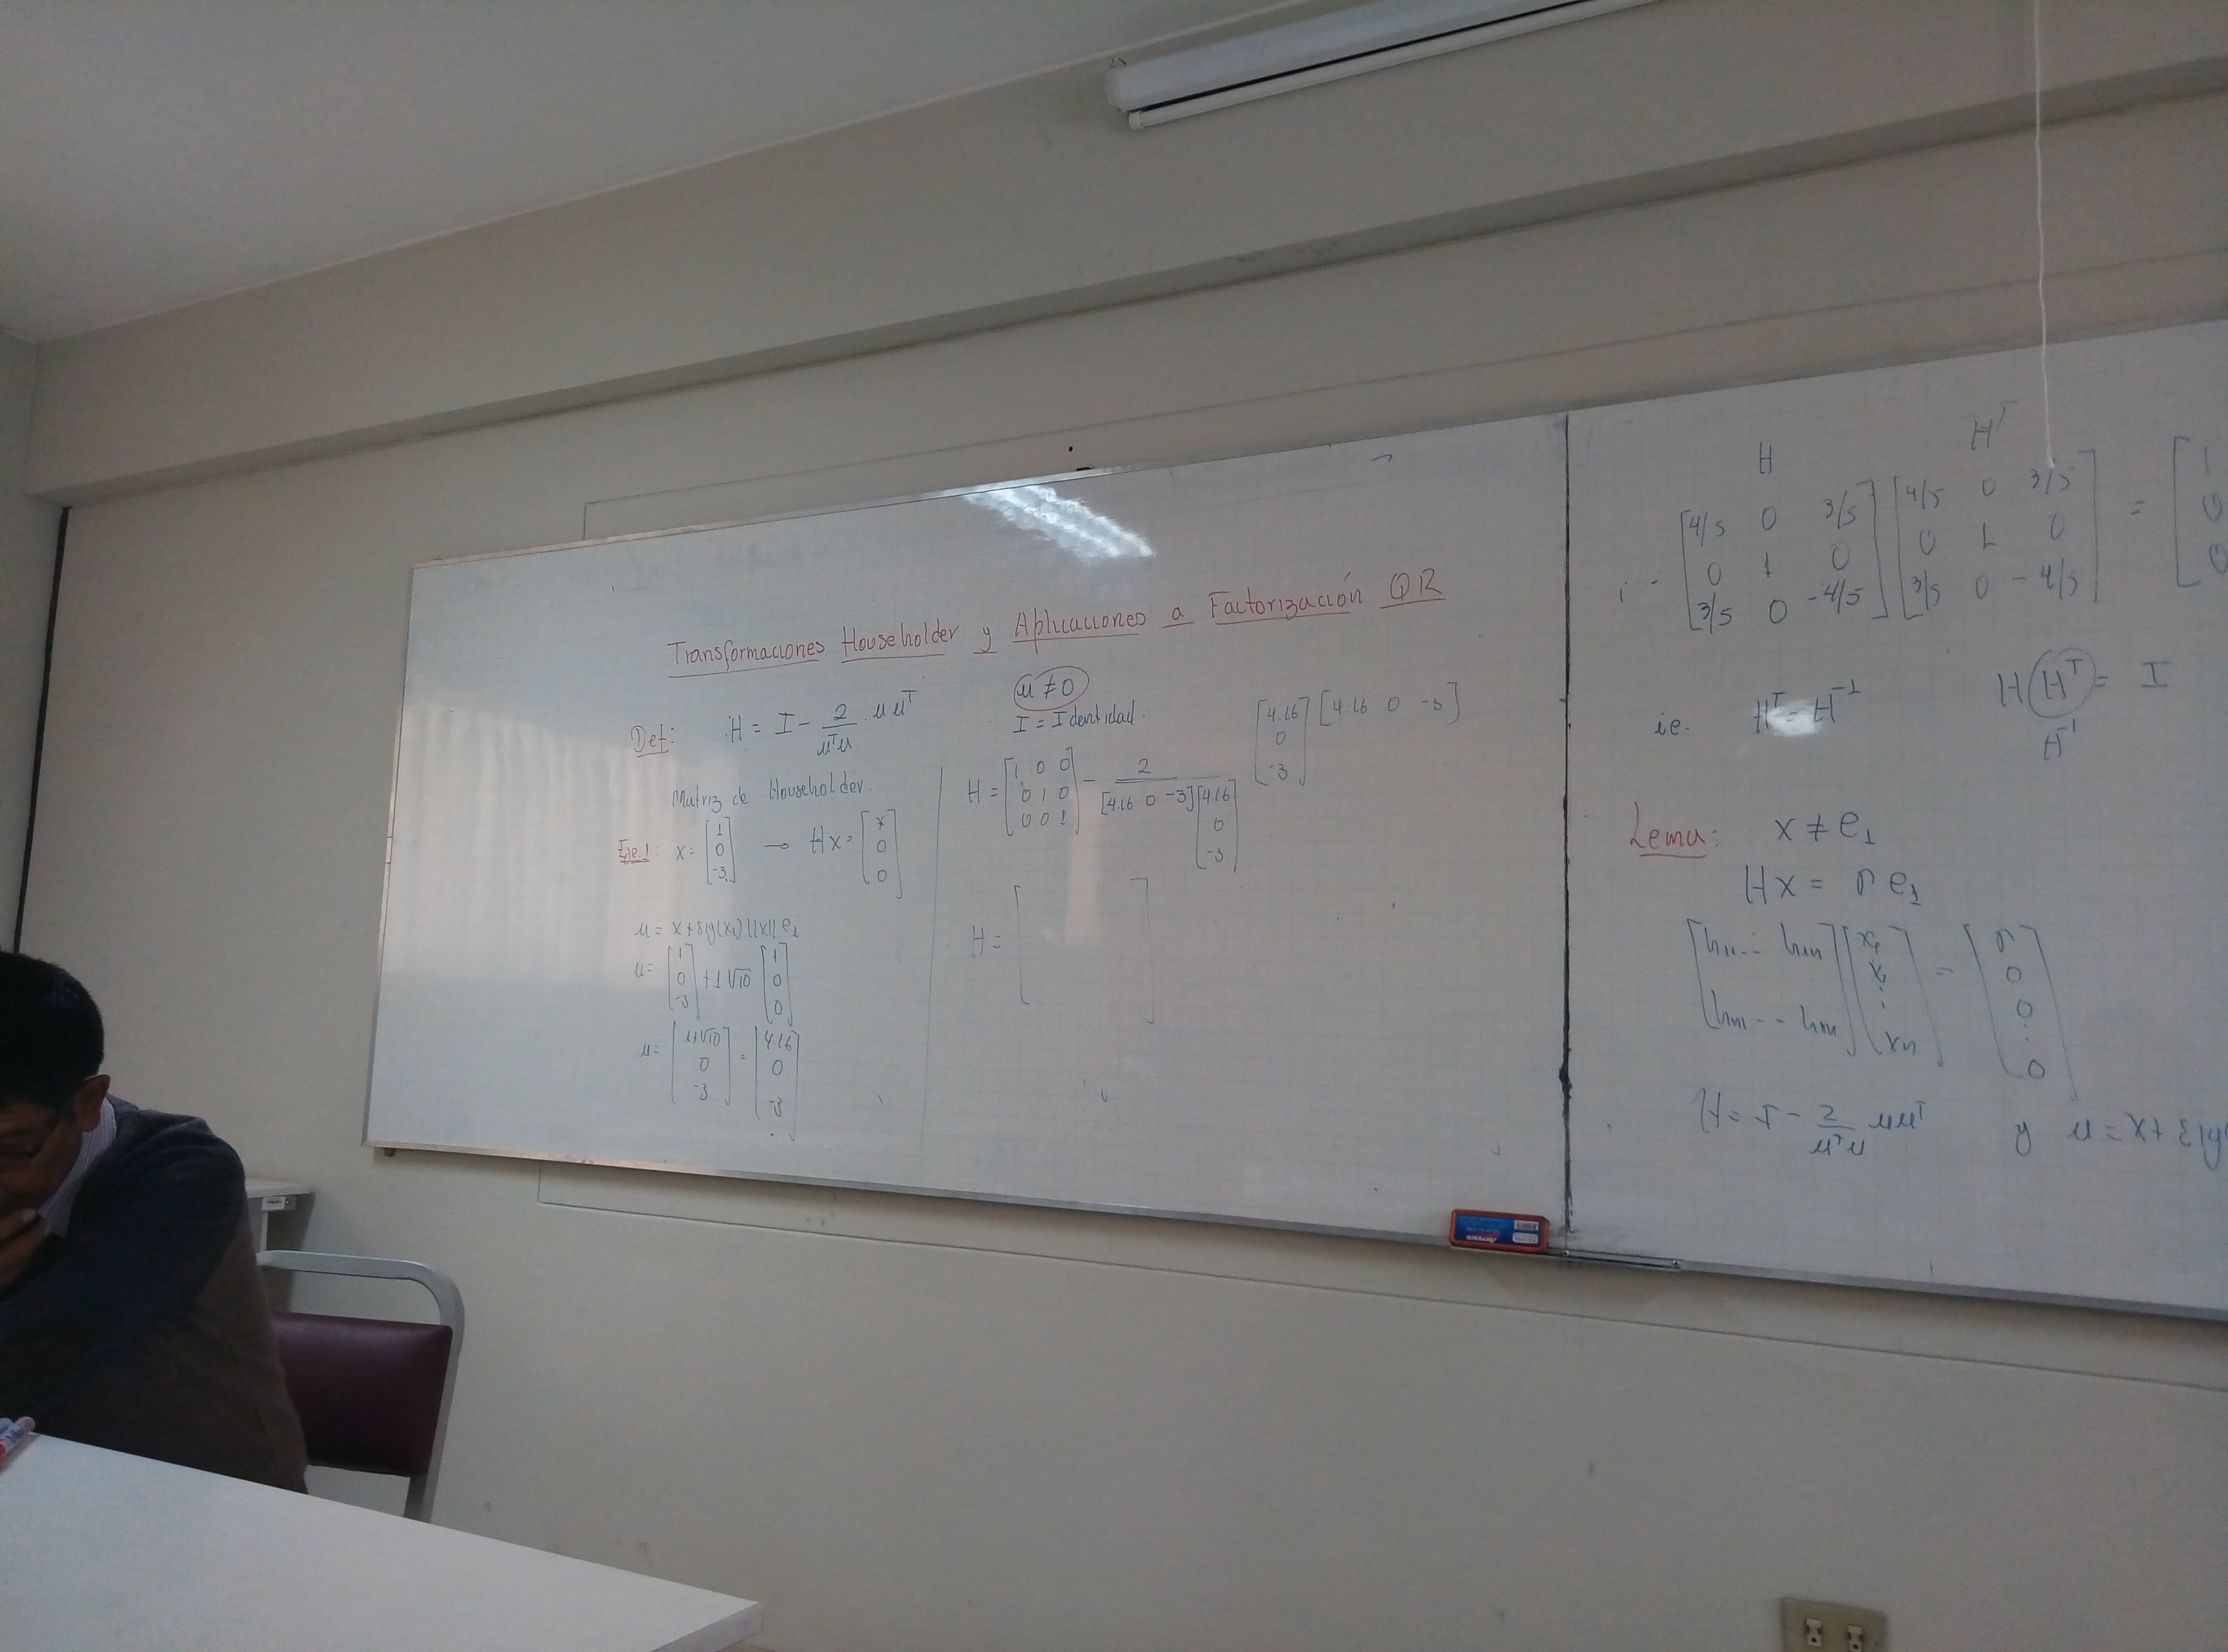 Transformaciones Householder y Aplicaciones a Factorización QR
Def: H = I - 2/(uᵀu) · u uᵀ
u ≠ 0
I = Identidad.
Matriz de Householder.
Eje.1: x = [1 0 -3] → Hx = [x 0 0]
u = x + sig(x₁) ||x|| e₁
u = [1 0 -3] + 1 √10 [1 0 0]
u = [1+√10 0 -3] = [4.16 0 -3]
H = [1 0 0; 0 1 0; 0 0 1] - 2/([4.16 0 -3][4.16 0 -3]) [4.16 0 -3] [4.16 0 -3]
H = [ ]
H Hᵀ
[4/5 0 3/5; 0 1 0; 3/5 0 -4/5] [4/5 0 3/5; 0 1 0; 3/5 0 -4/5] = [1 0 0
ie. Hᵀ = H⁻¹
H Hᵀ = I
H⁻¹
Lema: x ≠ e₁
Hx = r e₁
[h₁₁ ... h₁ₙ; hₙ₁ ... hₙₙ] [x₁ x₂ ⋮ xₙ] = [r 0 0 ⋮ 0]
H = I - 2/(uᵀu) uuᵀ y u = x + sig
ARTESCO